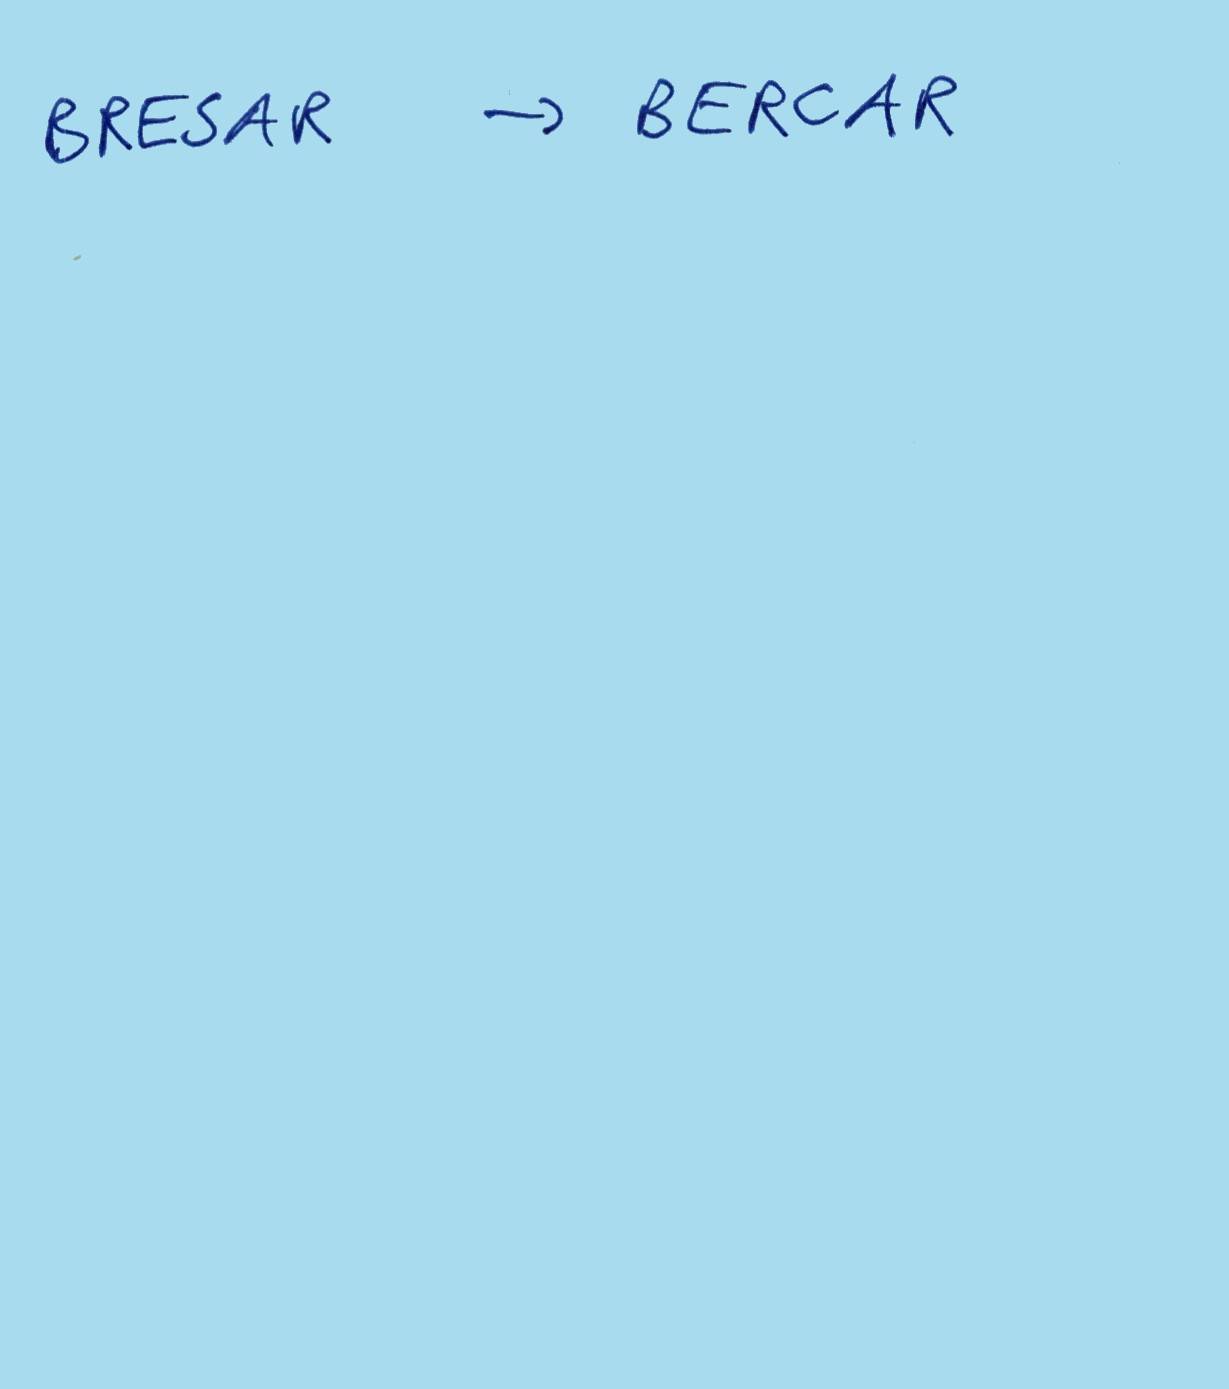 BRESAR → BERCAR